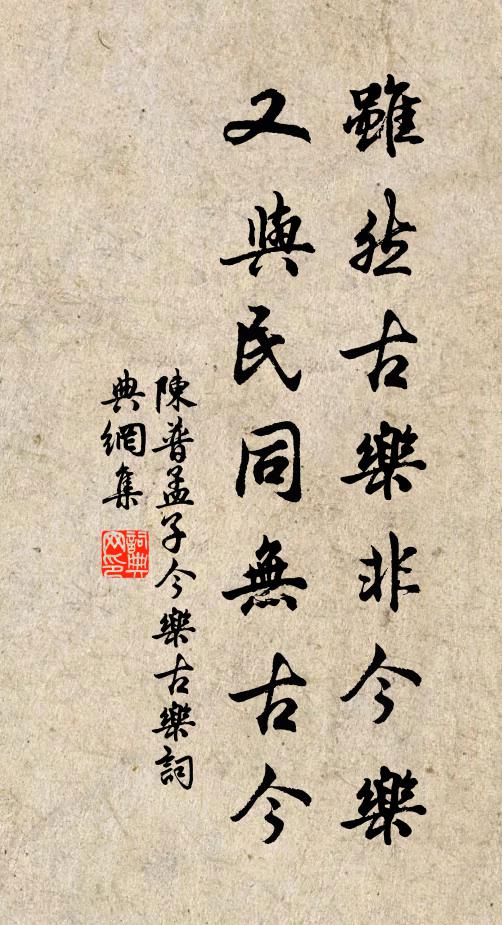 雖然古樂非今樂
又與民同無古今
陳普孟子今樂古樂詞
典網集
詞典
网印